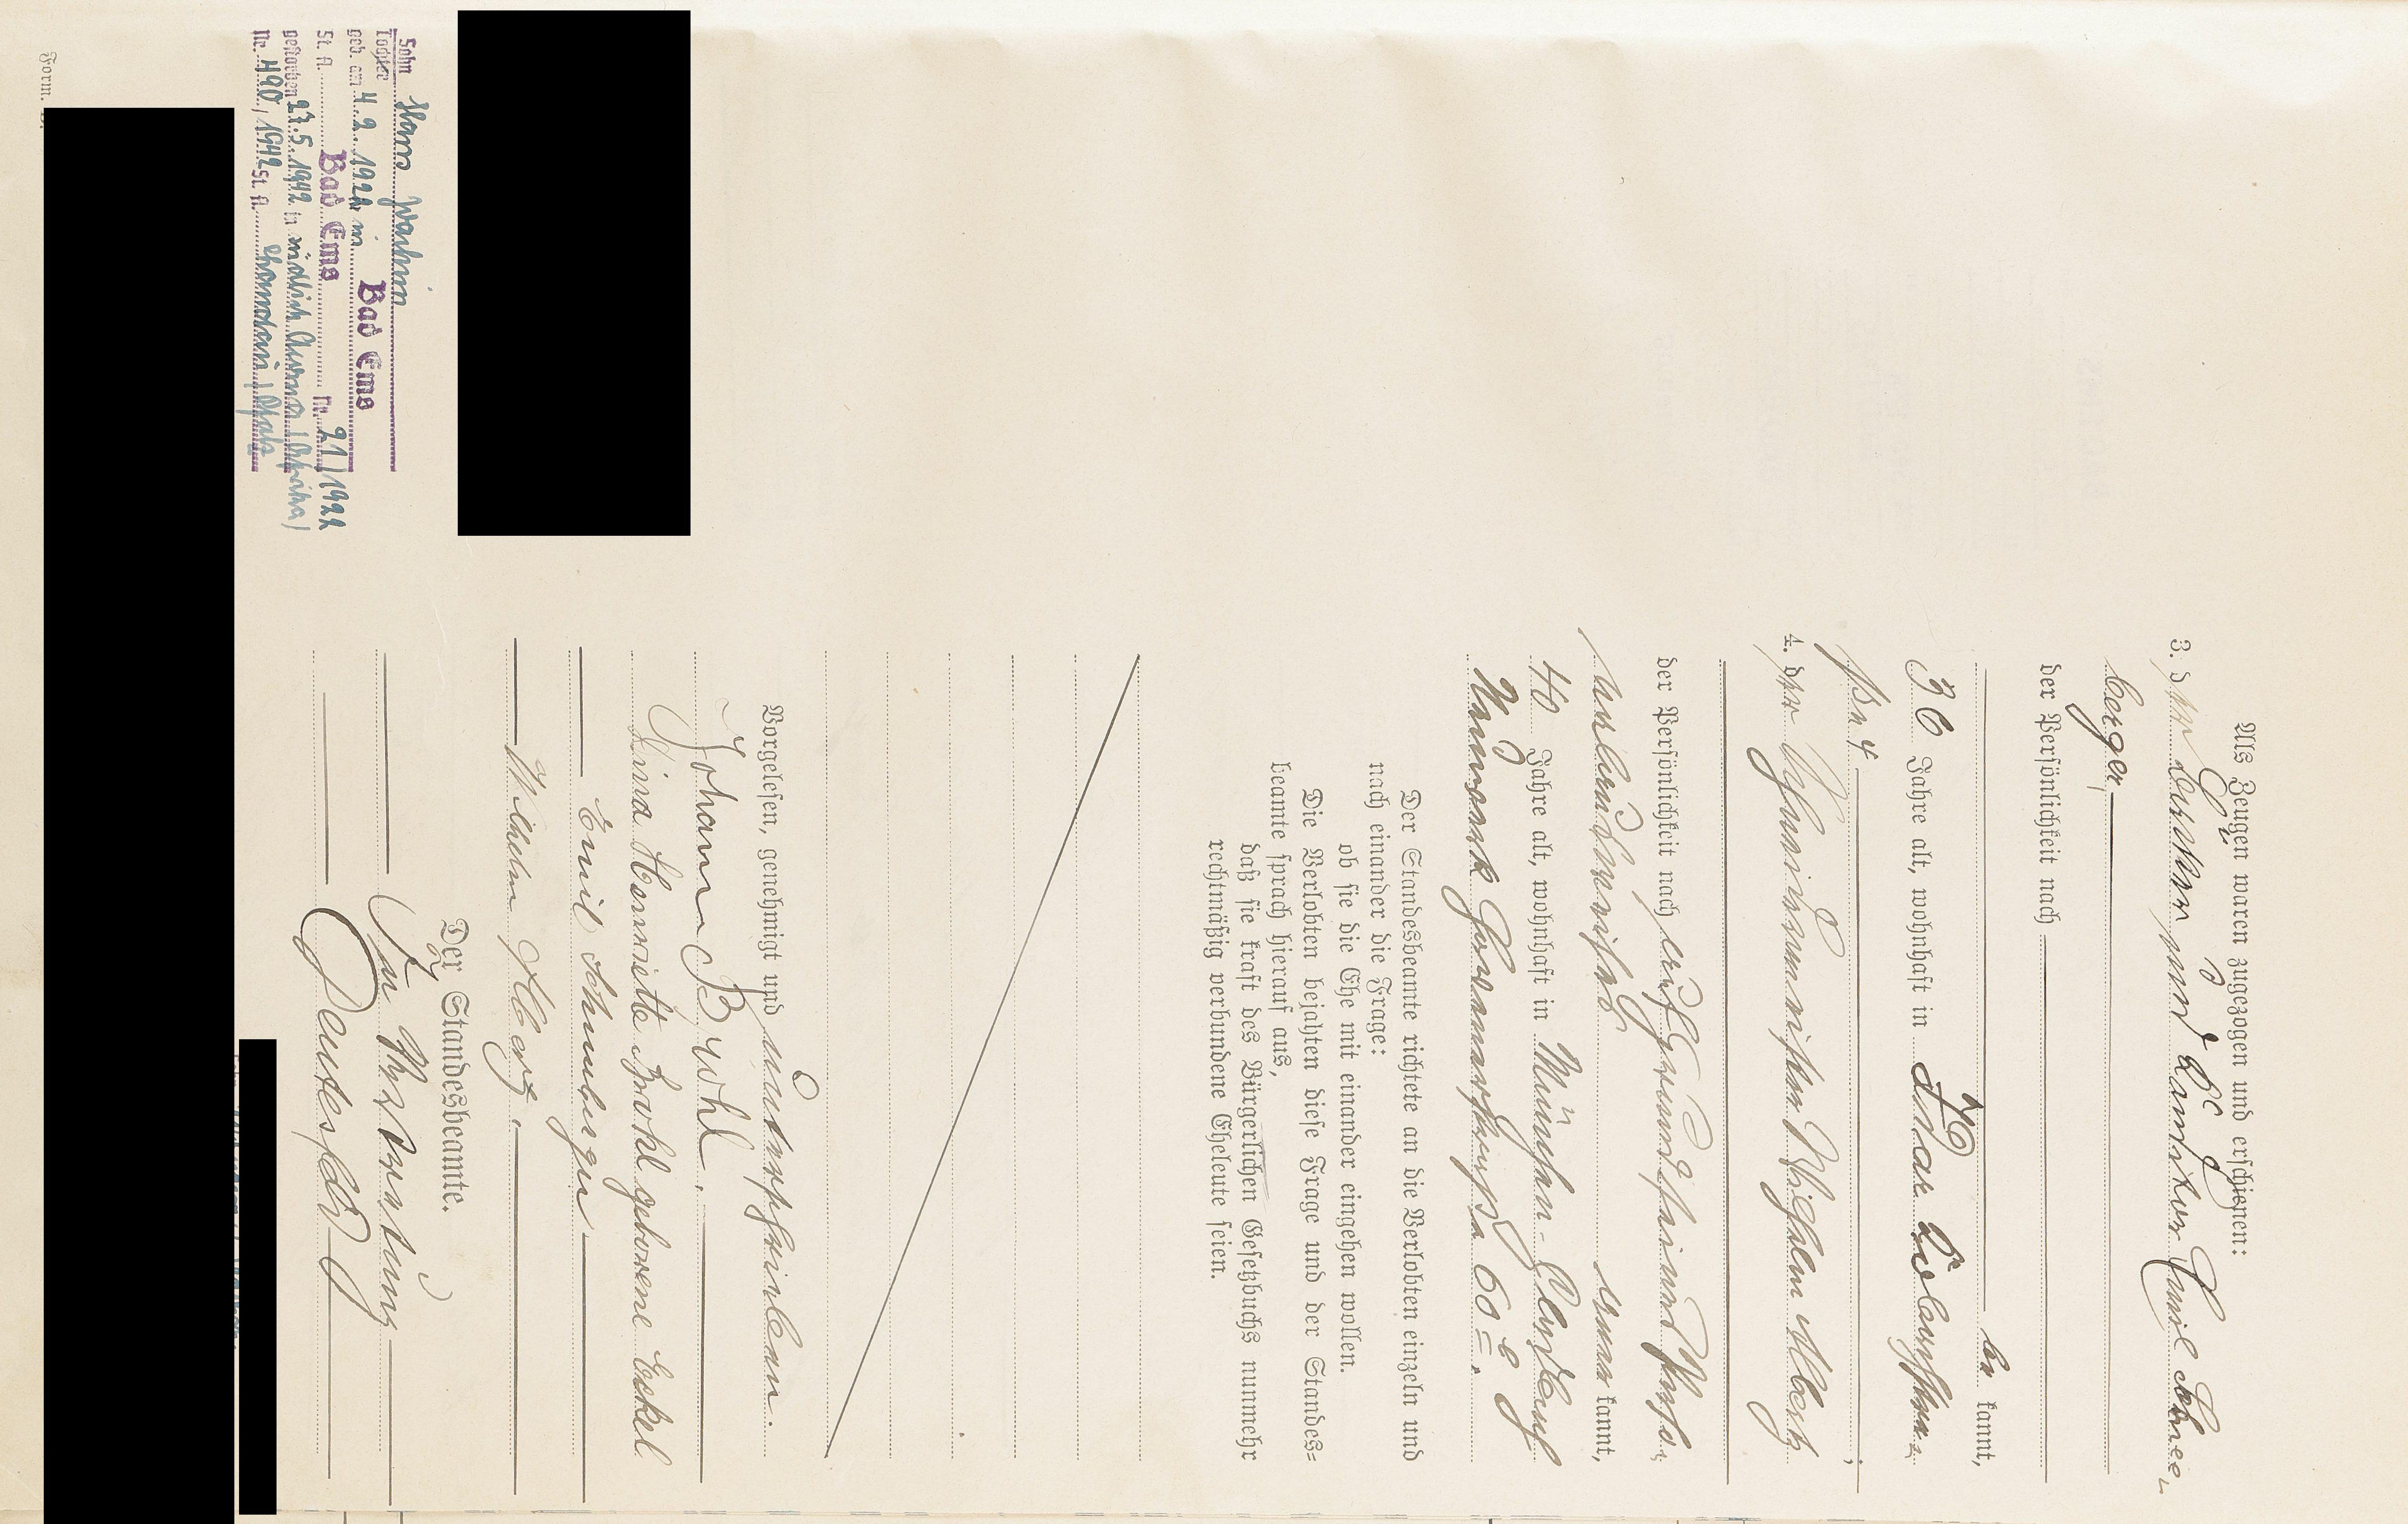 Als Zeugen waren zugezogen und erschienen:
3. der Emil Schnee-
berger,
der Persönlichkeit nach
be kannt,
36 Jahre alt, wohnhaft in Idar
4. der Wilhelm Albertz
;
der Persönlichkeit nach auf Grund seines Passes
aner kannt,
40 Jahre alt, wohnhaft in München-Gladbach
60 .
Der Standesbeamte richtete an die Verlobten einzeln und
nach einander die Frage:
ob sie die Ehe mit einander eingehen wollen.
Die Verlobten bejahten diese Frage und der Standes-
beamte sprach hierauf aus,
daß sie kraft des Bürgerlichen Gesetzbuchs nunmehr
rechtmäßig verbundene Eheleute seien.
Vorgelesen, genehmigt und unterschrieben.
Johann Brohl.
Lina Henriette Brohl geborene Eckel
Emil Schneeberger
Wilhelm Albertz.
Der Standesbeamte.
In Vertretung
Sohn Hans Joachim
Tochter
geb. am 4.2.1922 in Bad Ems
St. A. Bad Ems Nr. 21/1922
gestorben 27.5.1942 in
Nr. 490/1942 St. A.
Form.